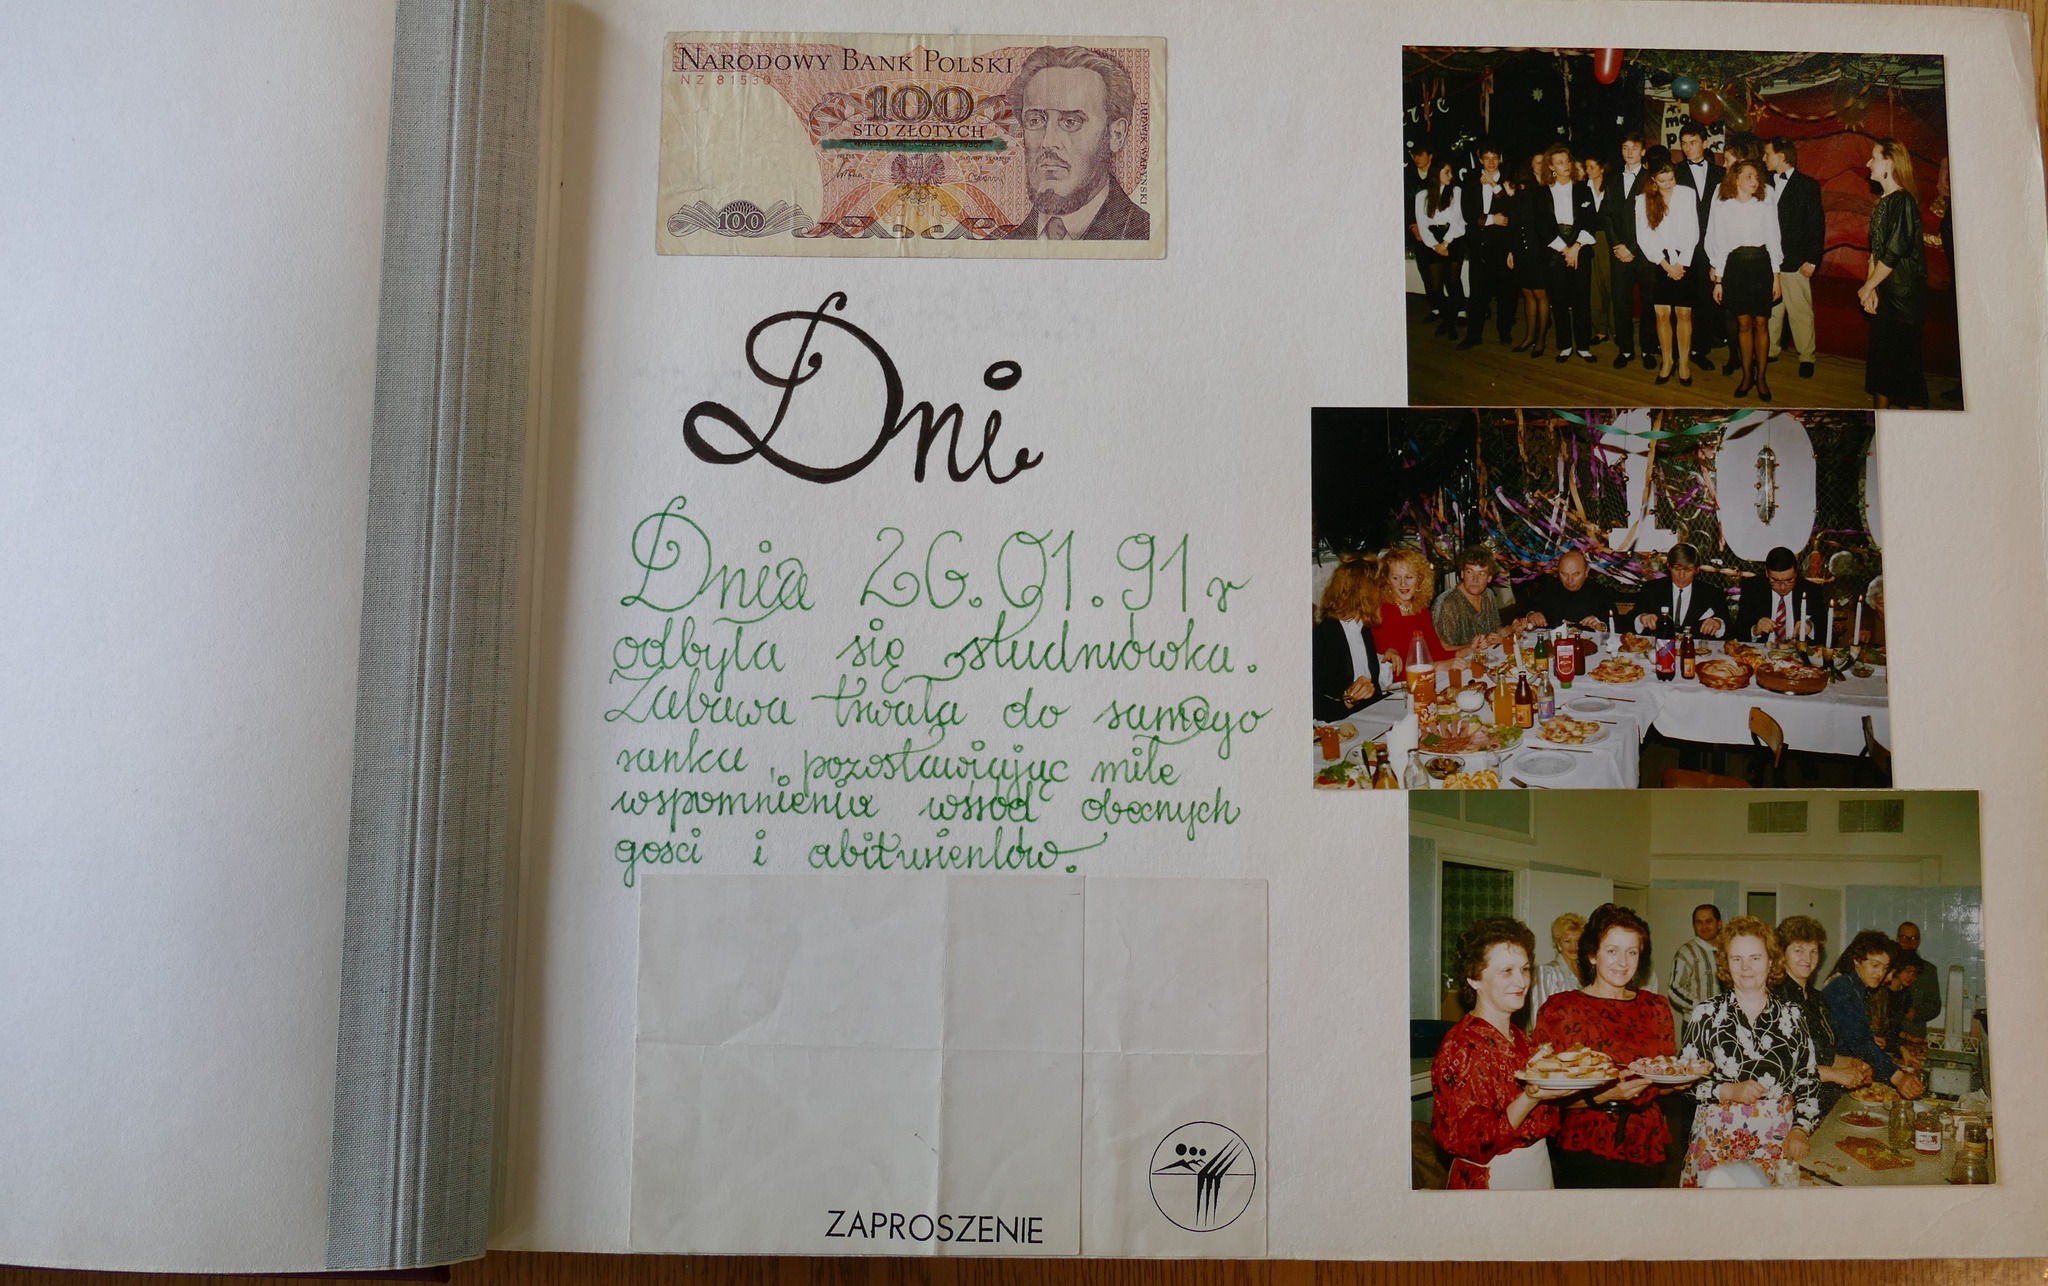 NARODOWY BANK POLSKI
NZ 81530
100
STO ZŁOTYCH
100
LUDWIK WARYŃSKI
Dni
Dnia 26.01.91 r
odbyła się studniówka.
Zabawa trwała do samego
ranka, pozostawiając miłe
wspomnienia wśród obecnych
gości i abiturientów.
ZAPROSZENIE
10